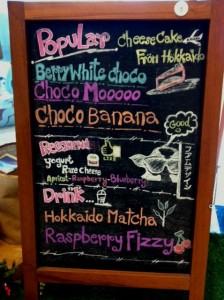 Popular
CheeseCake
From Hokkaido
Berry White choco
Choco Mooooo
Choco Banana
Good
Recommend
yogurt
Rare Cheese
LIKE
Apricot-Raspberry-Blueberry
Drink...
Hokkaido Matcha
Raspberry Fizzy